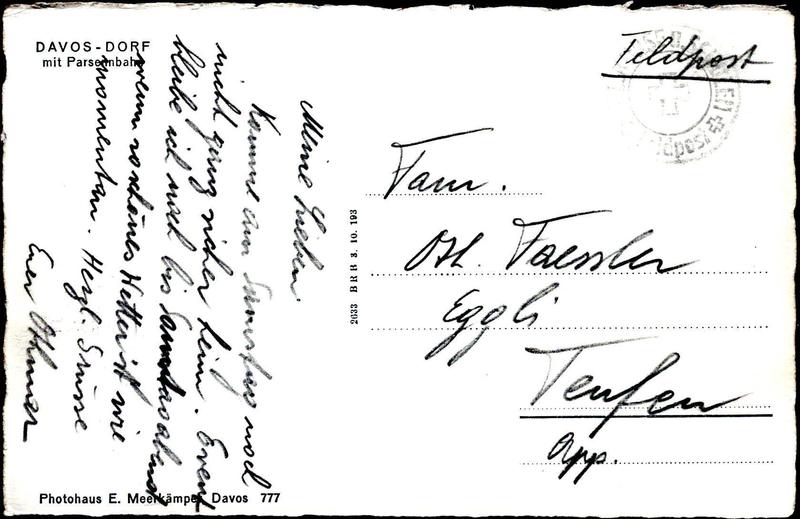 DAVOS-DORF
mit Parsennbahn
Meine Lieben.
Komme am Samstag noch
nicht ganz sicher heim. Event.
bleibe ich noch bis Samstag abend
wenn so schönes Wetter ist wie
momentan. Herzl. Grüsse
Euer Othmar
Photohaus E. Meerkämper Davos 777
2633 BRB 3. 10. 193
Feldpost
Feldpost
Fam.
Oth. Faessler
Eggli
Teufen
App.